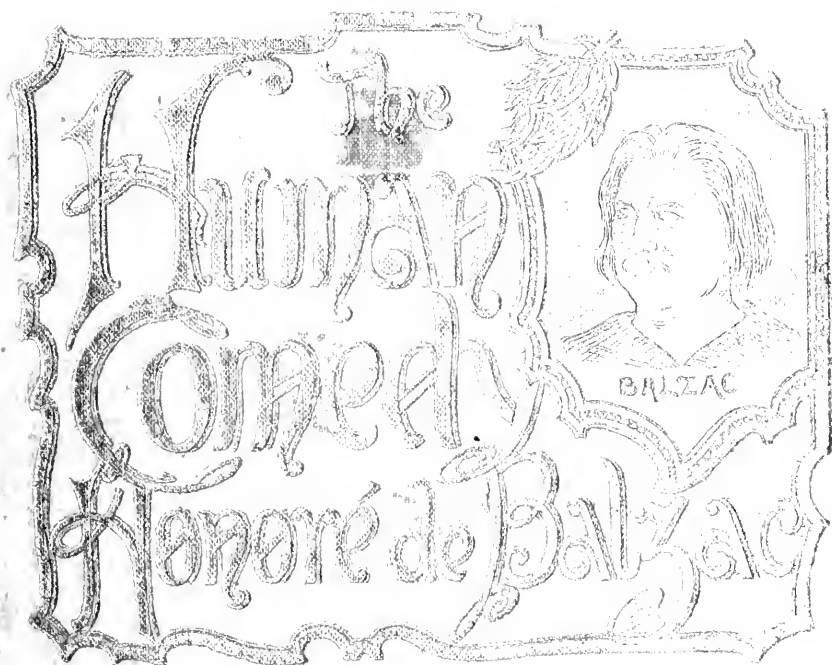 The
Human
Comedy
Honoré de Balzac
BALZAC